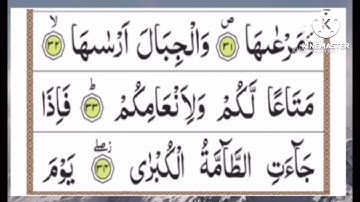 وَمَرْعٰىهَا ﴿۳۱﴾ وَالْجِبَالَ اَرْسٰىهَا ﴿۳۲﴾
مَتَاعًا لَّكُمْ وَلِاَنْعَامِكُمْ ﴿۳۳﴾ فَاِذَا
جَآءَتِ الطَّآمَّةُ الْكُبْرٰى ﴿۳۴﴾ يَوْمَ
KINEMASTER